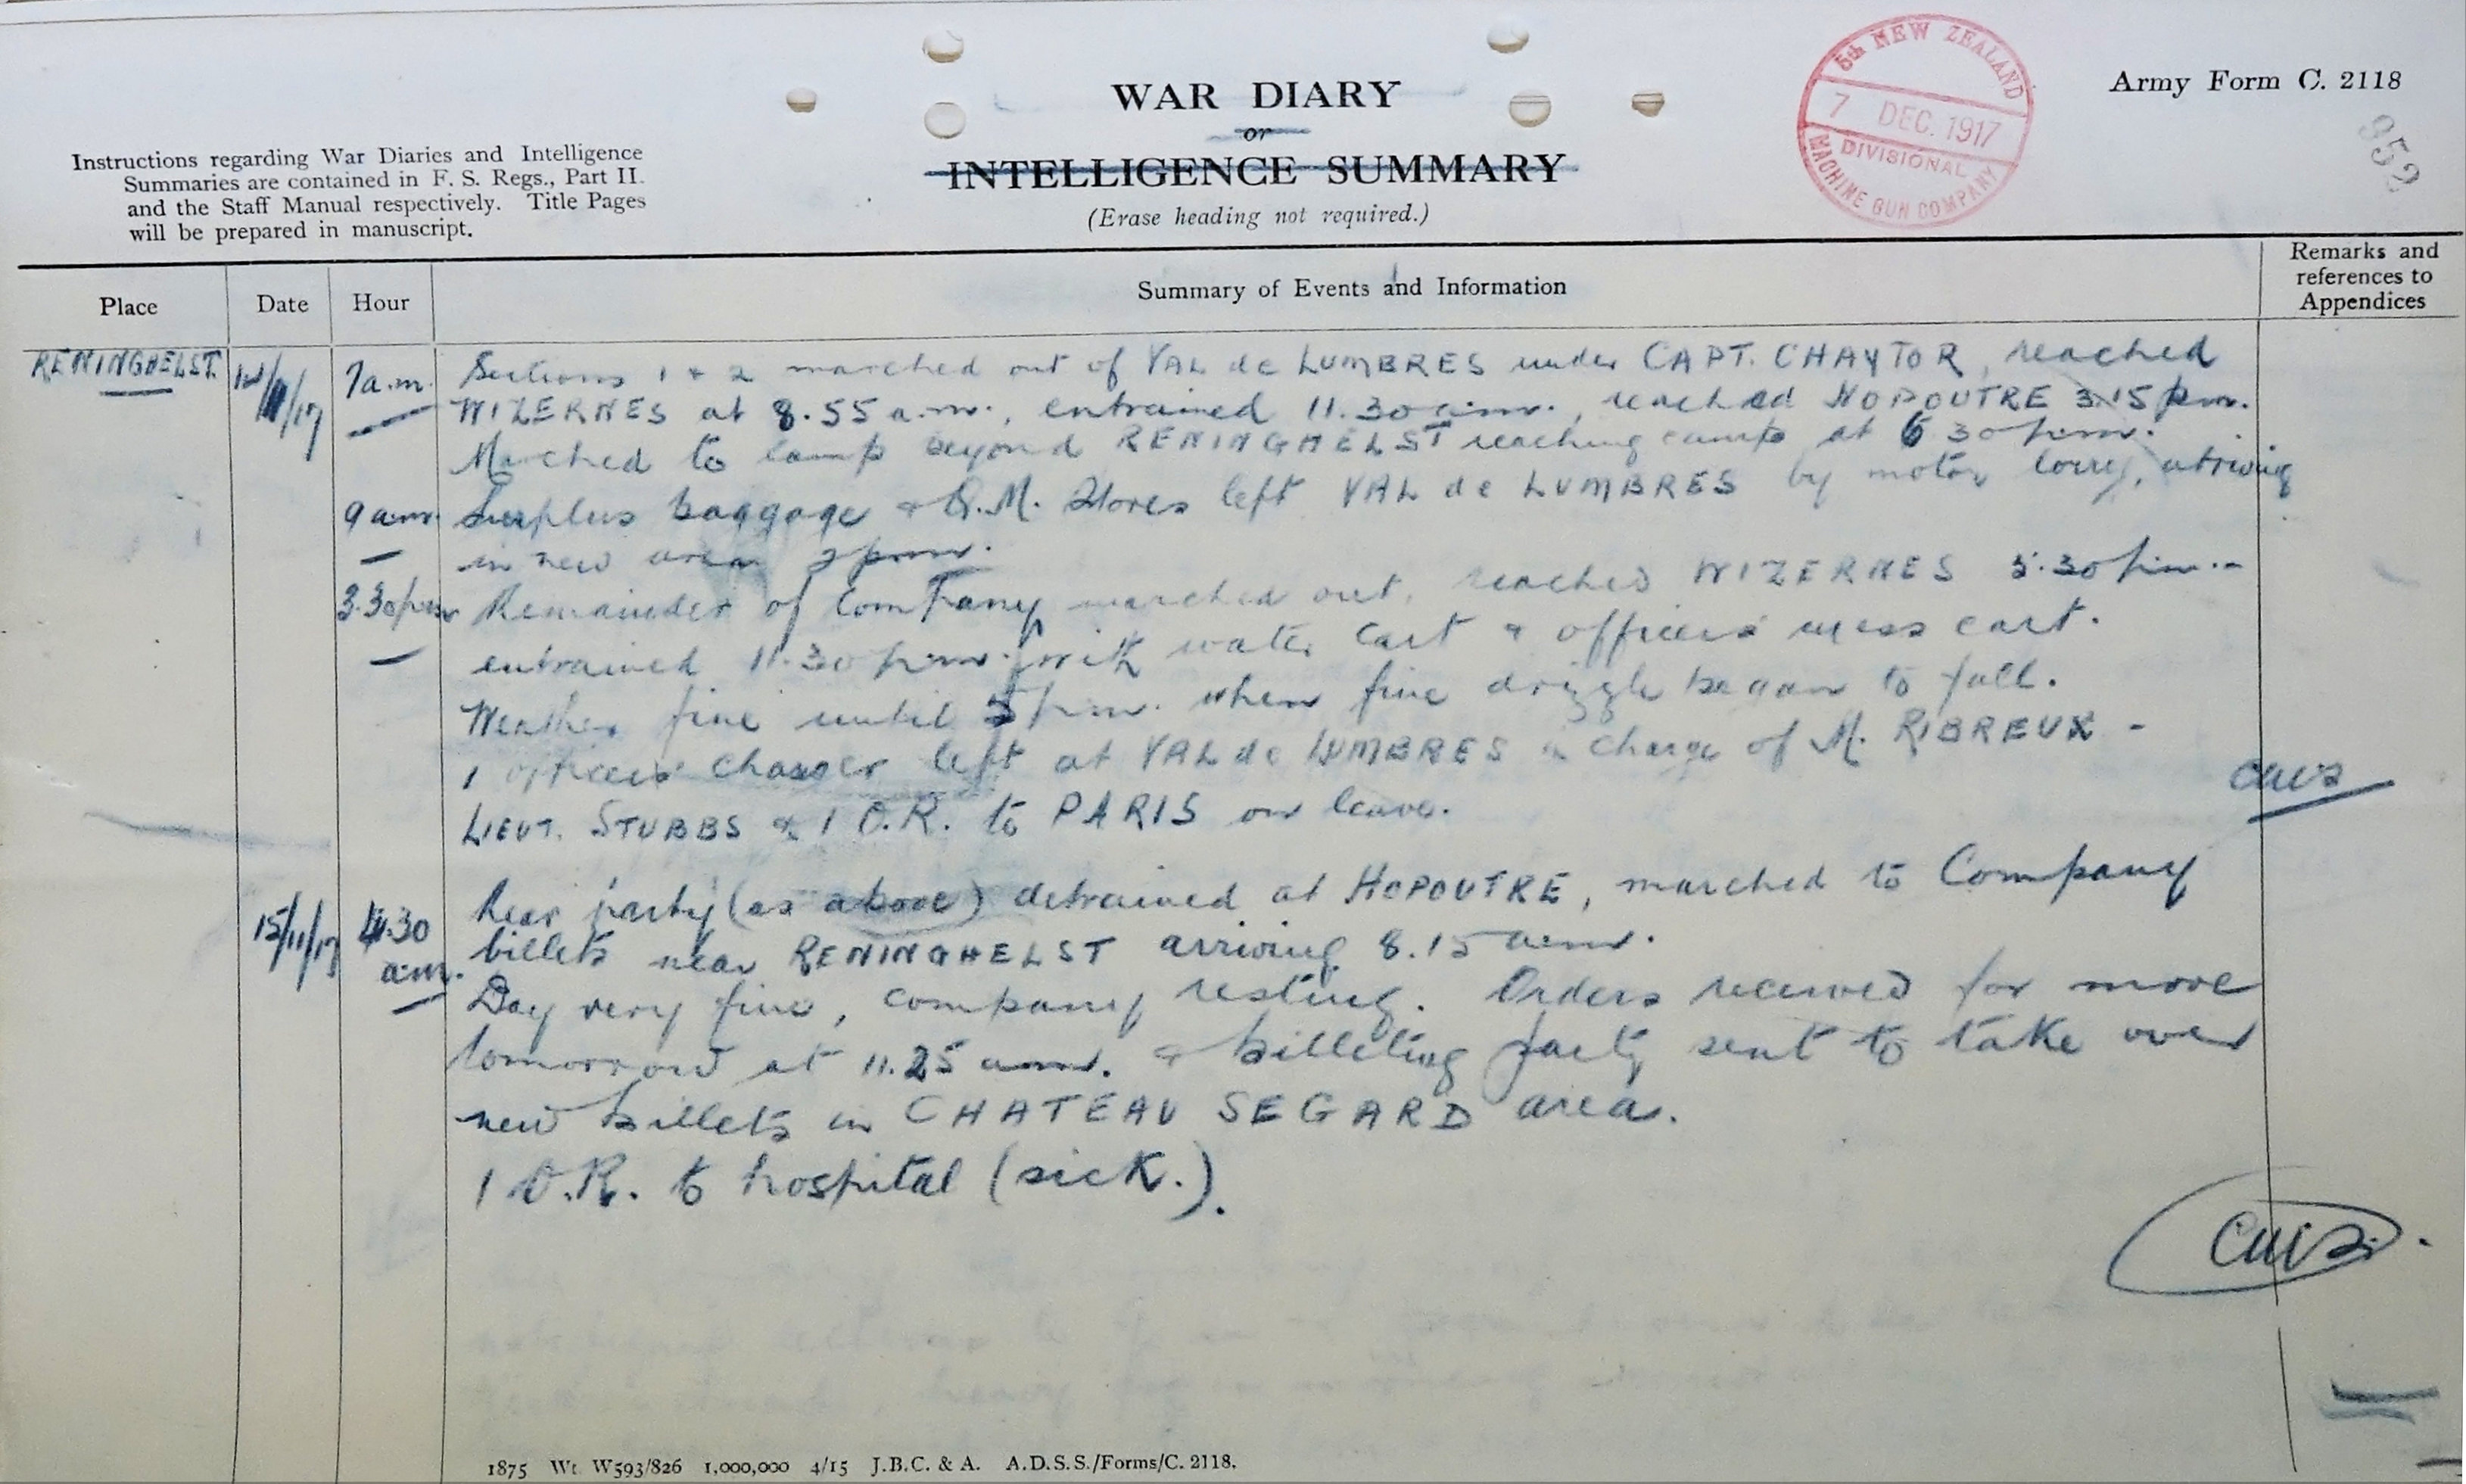 WAR DIARY
or
INTELLIGENCE SUMMARY
(Erase heading not required.)
Instructions regarding War Diaries and Intelligence
Summaries are contained in F. S. Regs., Part II.
and the Staff Manual respectively. Title Pages
will be prepared in manuscript.
5th NEW ZEALAND
7 DEC. 1917
DIVISIONAL
MACHINE GUN COMPANY
Army Form C. 2118
952
Place Date Hour Summary of Events and Information Remarks and references to Appendices
RENINGHELST. 14/11/17 7 a.m. Sections 1 & 2 marched out of VAL de LUMBRES under CAPT. CHAYTOR, reached
WIZERNES at 8.55 a.m., entrained 11.30 a.m., reached HOPOUTRE 3.15 p.m.
Marched to camp beyond RENINGHELST reaching camp at 6 30 p.m.
9 a.m. Surplus baggage & Q.M. Stores left VAL de LUMBRES by motor lorry, arriving
in new area 3 p.m.
3.30 p.m. Remainder of Company marched out, reached WIZERNES 5.30 p.m.
entrained 11.30 p.m. with water cart & officers' mess cart.
Weather fine until 5 p.m. when fine drizzle began to fall.
1 officers' charger left at VAL de LUMBRES in charge of M. RIBREUX -
LIEUT. STUBBS & 1 O.R. to PARIS on leave.
15/11/17 4.30 a.m. Rear party (as above) detrained at HOPOUTRE, marched to Company
billets near RENINGHELST arriving 8.15 a.m.
Day very fine, company resting. Orders received for move
tomorrow at 11.25 a.m. & billeting party sent to take over
new billets in CHATEAU SEGARD area.
1 O.R. to hospital (sick.).
1875 Wt. W593/826 1,000,000 4/15 J.B.C. & A. A.D.S.S./Forms/C. 2118.